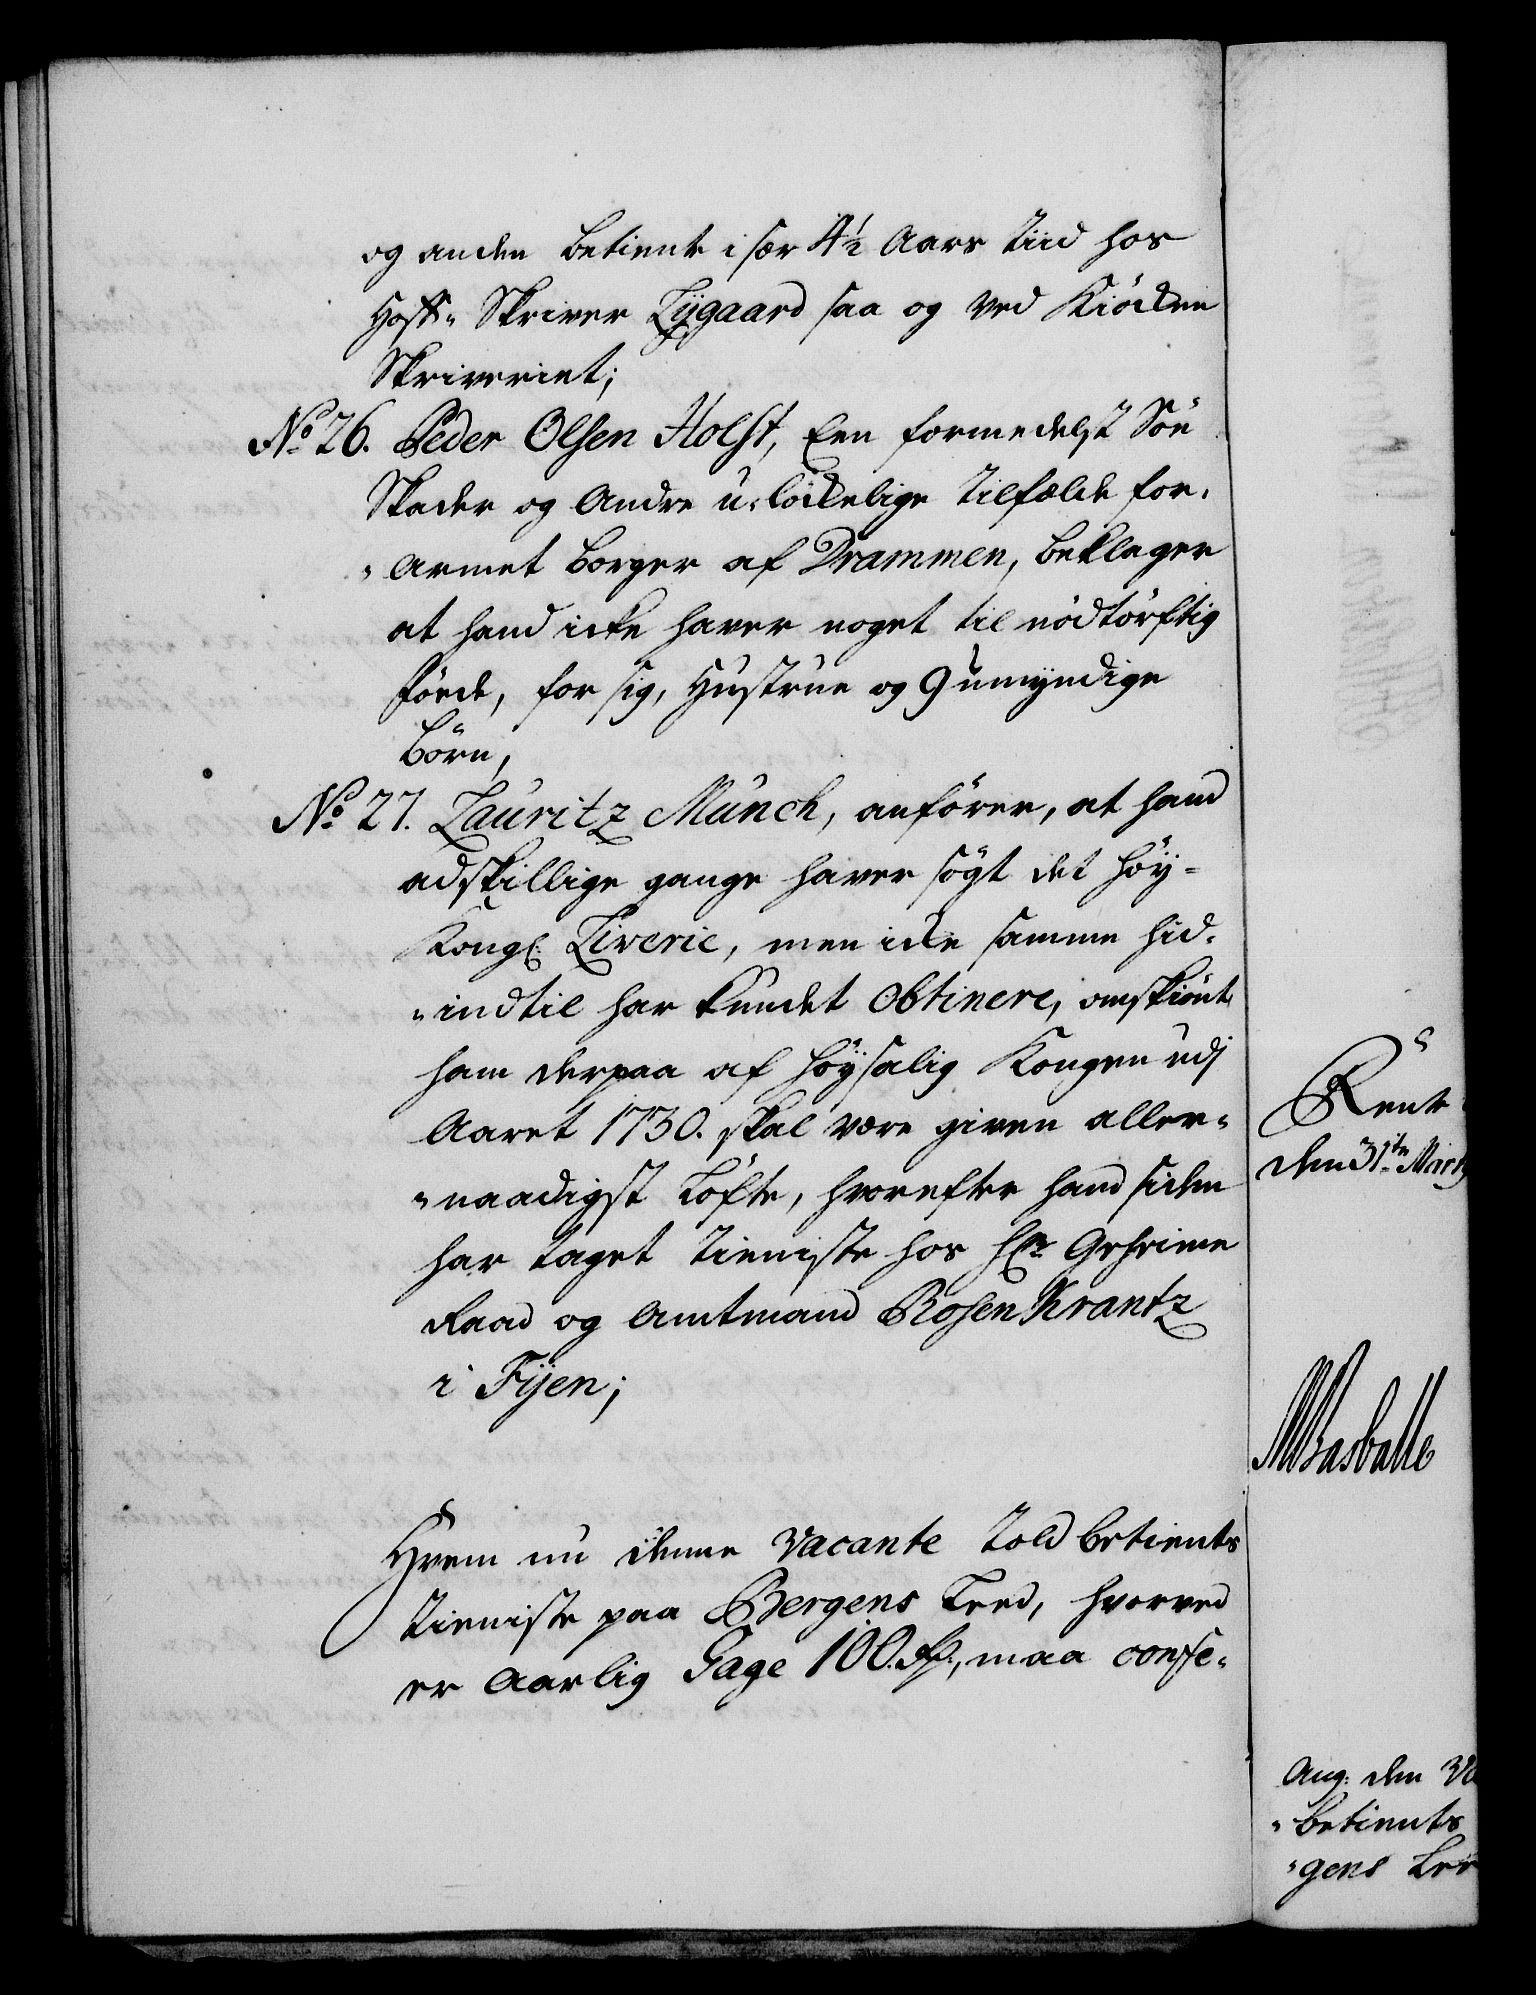 og anden betient i sær 4½ Aars Tiid hos
Hoff- Skriver Lÿgaard saa og ved Kiöcken
Skriveriet;
No 26. Peder Olsen Holst, Een formedelst Söe
Skader og Andre u-löckelige Tilfælde for-
-armet borger af Drammen, beklager
at hand icke haver noget til nödtörftig
föede, for sig, Hustrue og 9 umyndige
börn,
No 27. Lauritz Münch, anförer, at hand
adskillige gange haver sögt det Höy-
Kongl: Liverie, men icke samme hid-
-indtil har kundet obtinere, omskiönt
ham derpaa af höysalig Kongen udj
Aaret 1730. skal være given aller-
-naadigst Löfte, hvorefter hand siden
har taget Tieniste hos Hr Geheime
Raad og Amtmand RosenKrantz
i Fÿen;
Hvem nu denne vacante Told betients
Tieniste paa Bergens Leed, hvorved
er Aarlig Gage 100. Rd., maa confe-
Rente
den 31te Marty
Ang: den Va
-betients
-gens Lee